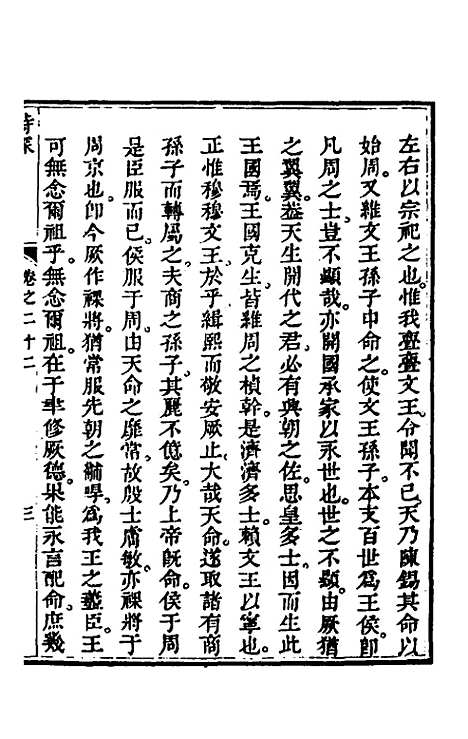 左右以宗祀之也。惟我亹亹文王令聞不已。天乃陳錫其命以
始周。又雖文王孫子申命之。使文王孫子本支百世爲王侯。卽
凡周之士。豈不顯哉。亦開國承家以永世也。世之不顯。由厥猶
之翼翼。蓋天生開代之君。必有興朝之佐。思皇多士。因而生此
王國焉。王國克生。皆維周之楨幹。是濟濟多士。賴文王以寧也。
正惟穆穆文王。於乎緝熙而敬安厥止。大哉天命。遂取諸有商
孫子而轉屬之。夫商之孫子。其麗不億矣。乃上帝旣命。侯于周
是臣服而已。侯服于周。由天命之靡常。故殷士膚敏。亦祼將于
周京也。卽今厥作祼將。猶常服先朝之黼冔。爲我王之藎臣。王
可無念爾祖乎。無念爾祖。在于聿修厥德。果能永言配命。庶幾
卷之二十二
三